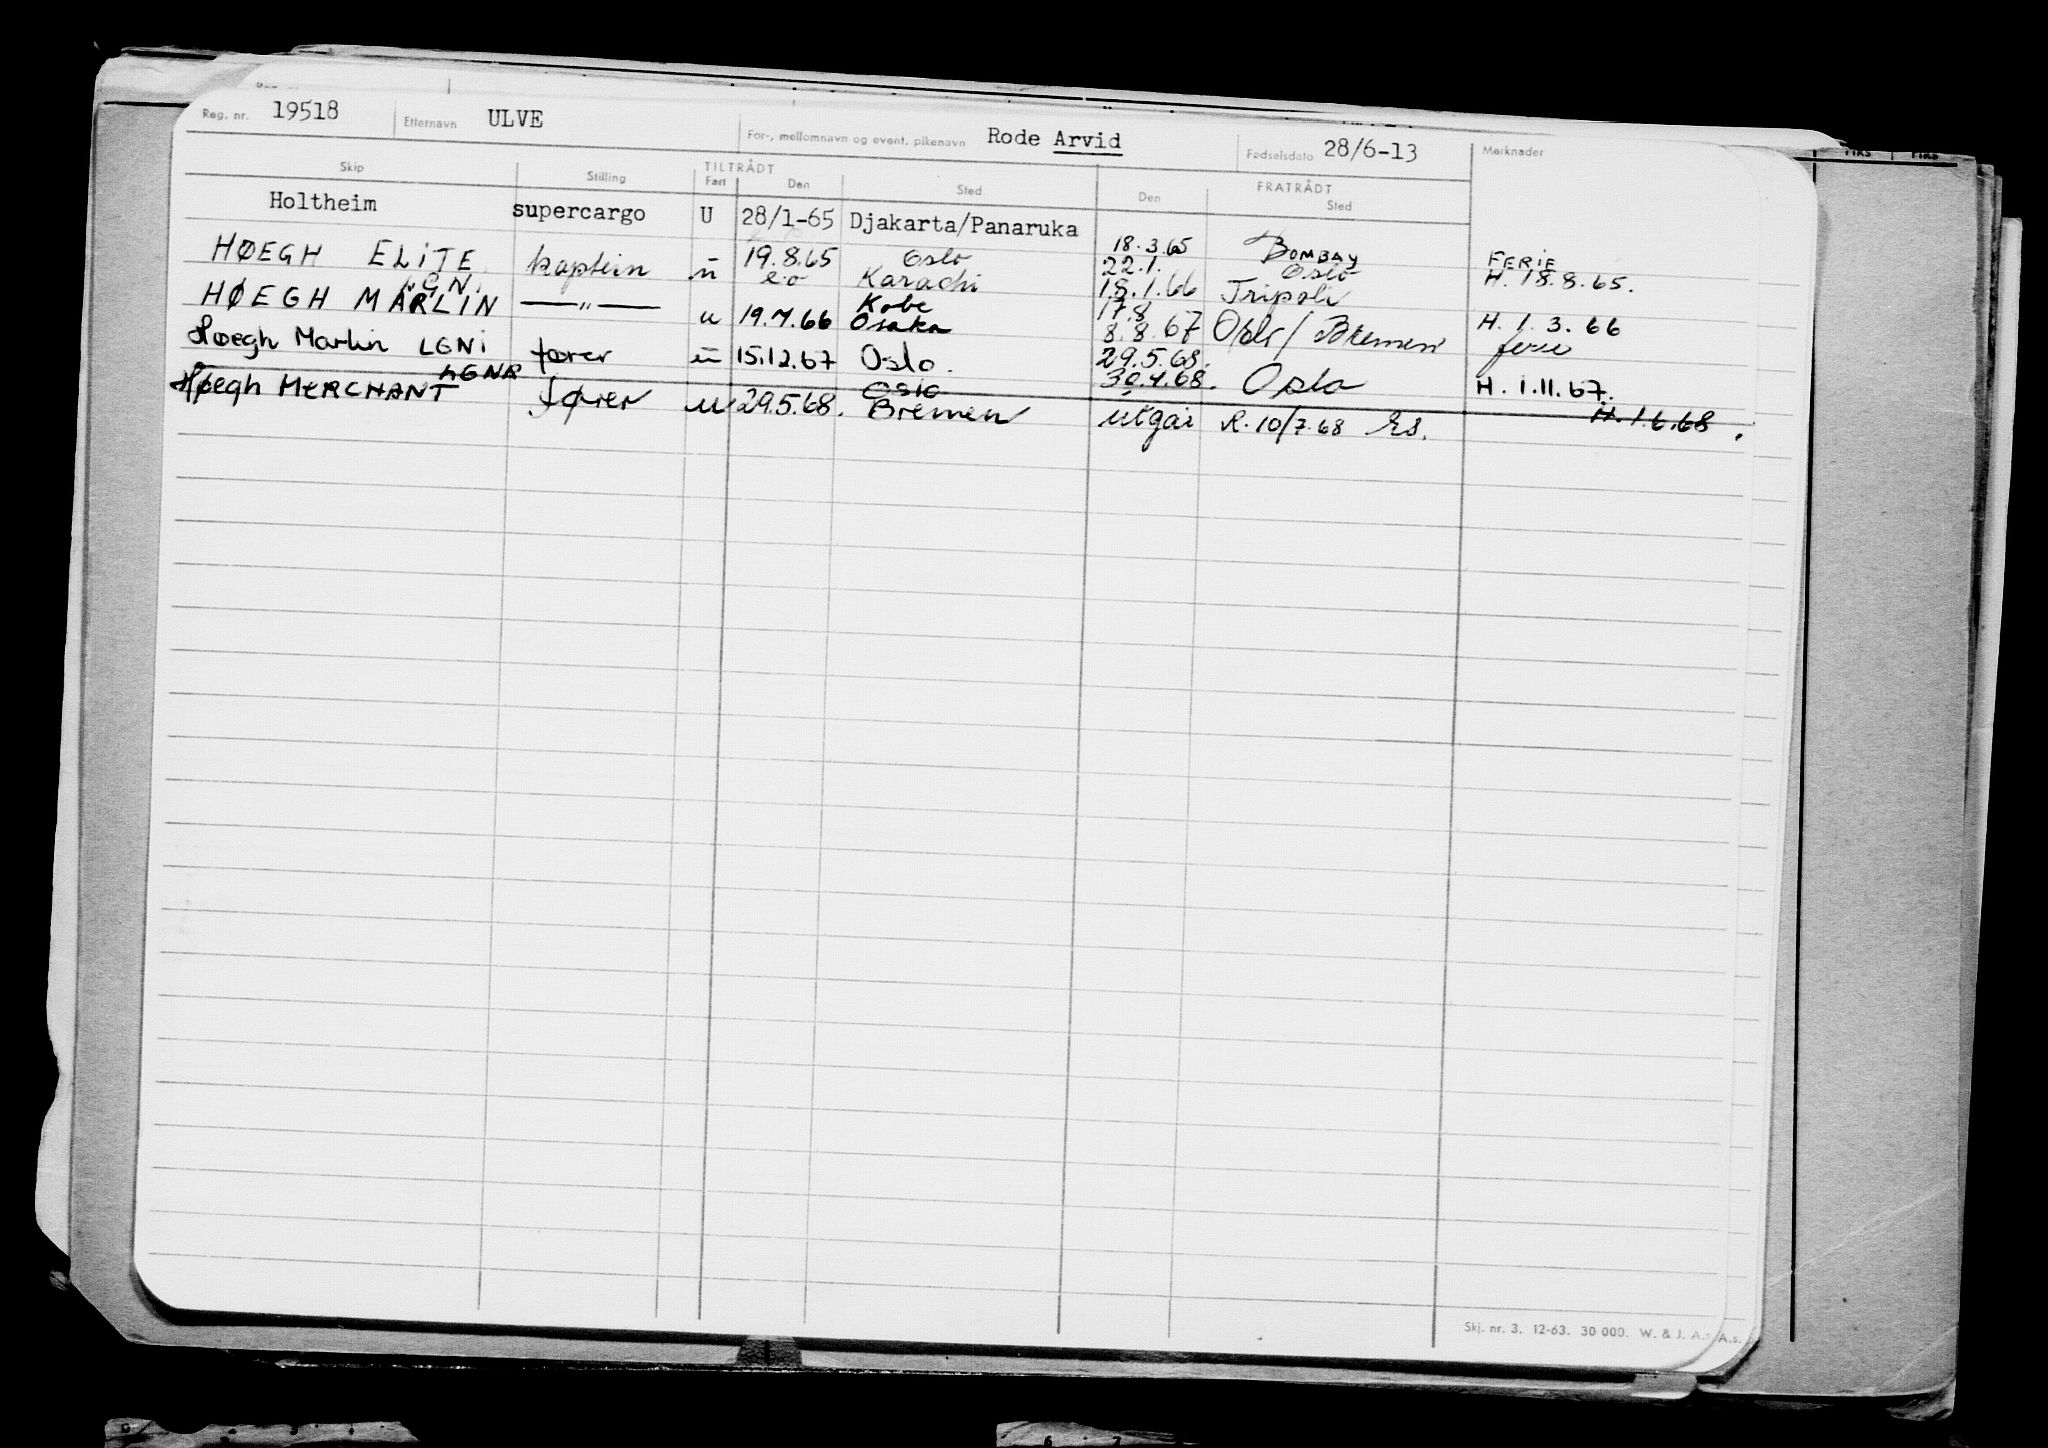 Reg. nr. 19518 Etternavn ULVE For-, mellomnavn og event. pikenavn Rode Arvid Fødselsdato 28/6-13 Merknader
Skip Stilling TILTRÅDT Fart Den Sted FRATRÅDT Den Sted
Holtheim supercargo U 28/1-65 Djakarta/Panaruka 18.3.65 BOMBAY FERIE
HØEGH ELITE kaptein u 19.8.65 Oslo 22.1. Oslo H. 18.8.65.
Karachi 18.1.66 Tripoli
HØEGH MARLIN —"— u 19.4.66 Kobe Osaka 17.8 8.8.67 Oslo/Bremen H. 1.3.66 ferie
Høegh Marlin LGNI fører u 15.12.67 Oslo. 29.5.68. 30.4.68. Oslo H. 1.11.67.
Høegh MERCHANT fører u 29.5.68. Oslo Bremen utgår R. 10/7.68 H. 1.6.68.
Skj. nr. 3. 12-63. 30 000. W. & J. A.s.